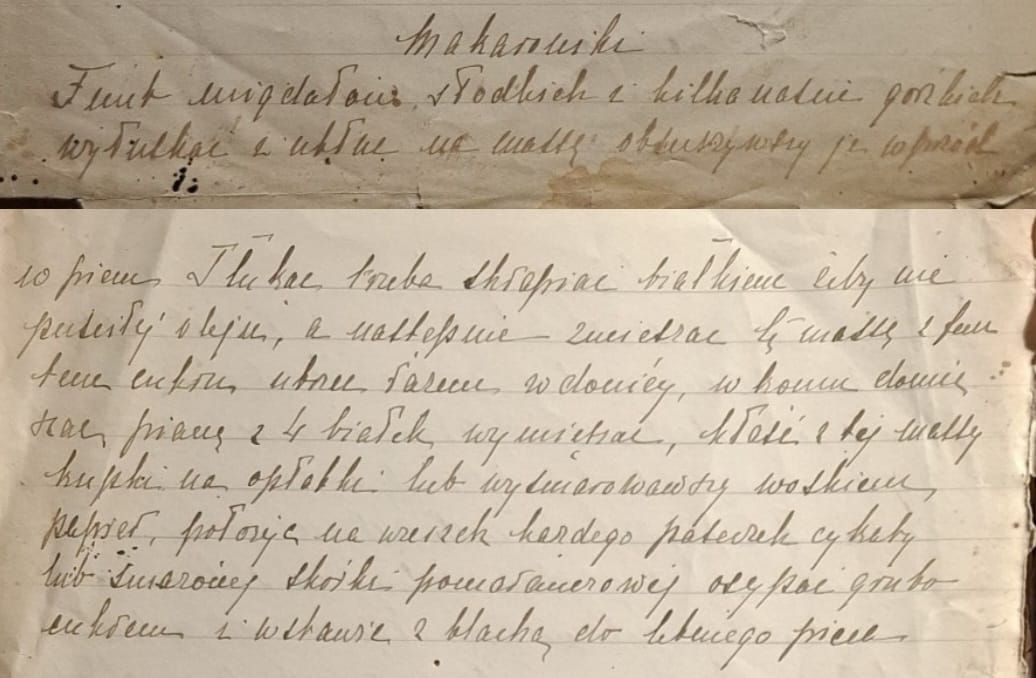 Makaroniki
Funt migdałów słodkich i kilkanaście gorzkich
wyłuskać i utłuc na massę obsuszywszy je wprzód
w piecu Tłukąc trzeba skrapiać białkiem żeby nie
puściły oleju, a następnie zmieszać tę massę z fun
tem cukru utrzeć razem w donicy, w końcu
pianę z 4 białek wymieszać, kłaść z tej massy
kupki na opłatki lub wysmarowawszy woskiem
papier, położyć na wierzch każdego paseczek cykaty
lub smażonej skórki pomarańczowej osypać grubo
cukrem i wstawić z blachą do letniego pieca